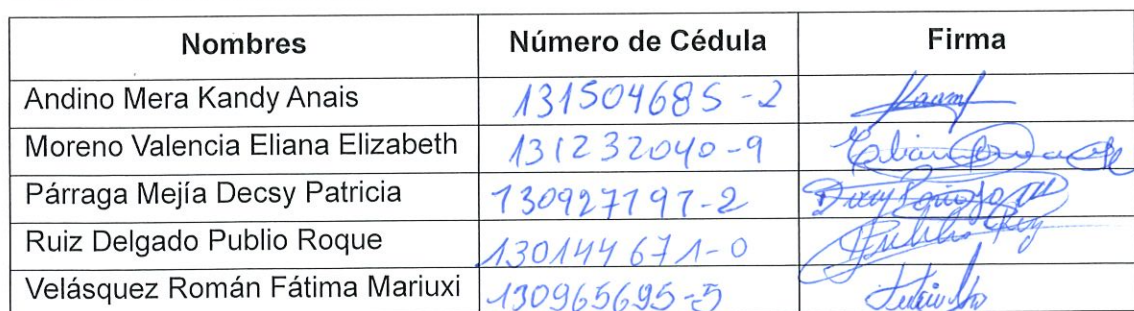 Nombres Número de Cédula Firma
Andino Mera Kandy Anais 131504685-2
Moreno Valencia Eliana Elizabeth 131232040-9
Párraga Mejía Decsy Patricia 130927197-2
Ruiz Delgado Publio Roque 130144671-0
Velásquez Román Fátima Mariuxi 130965695-5